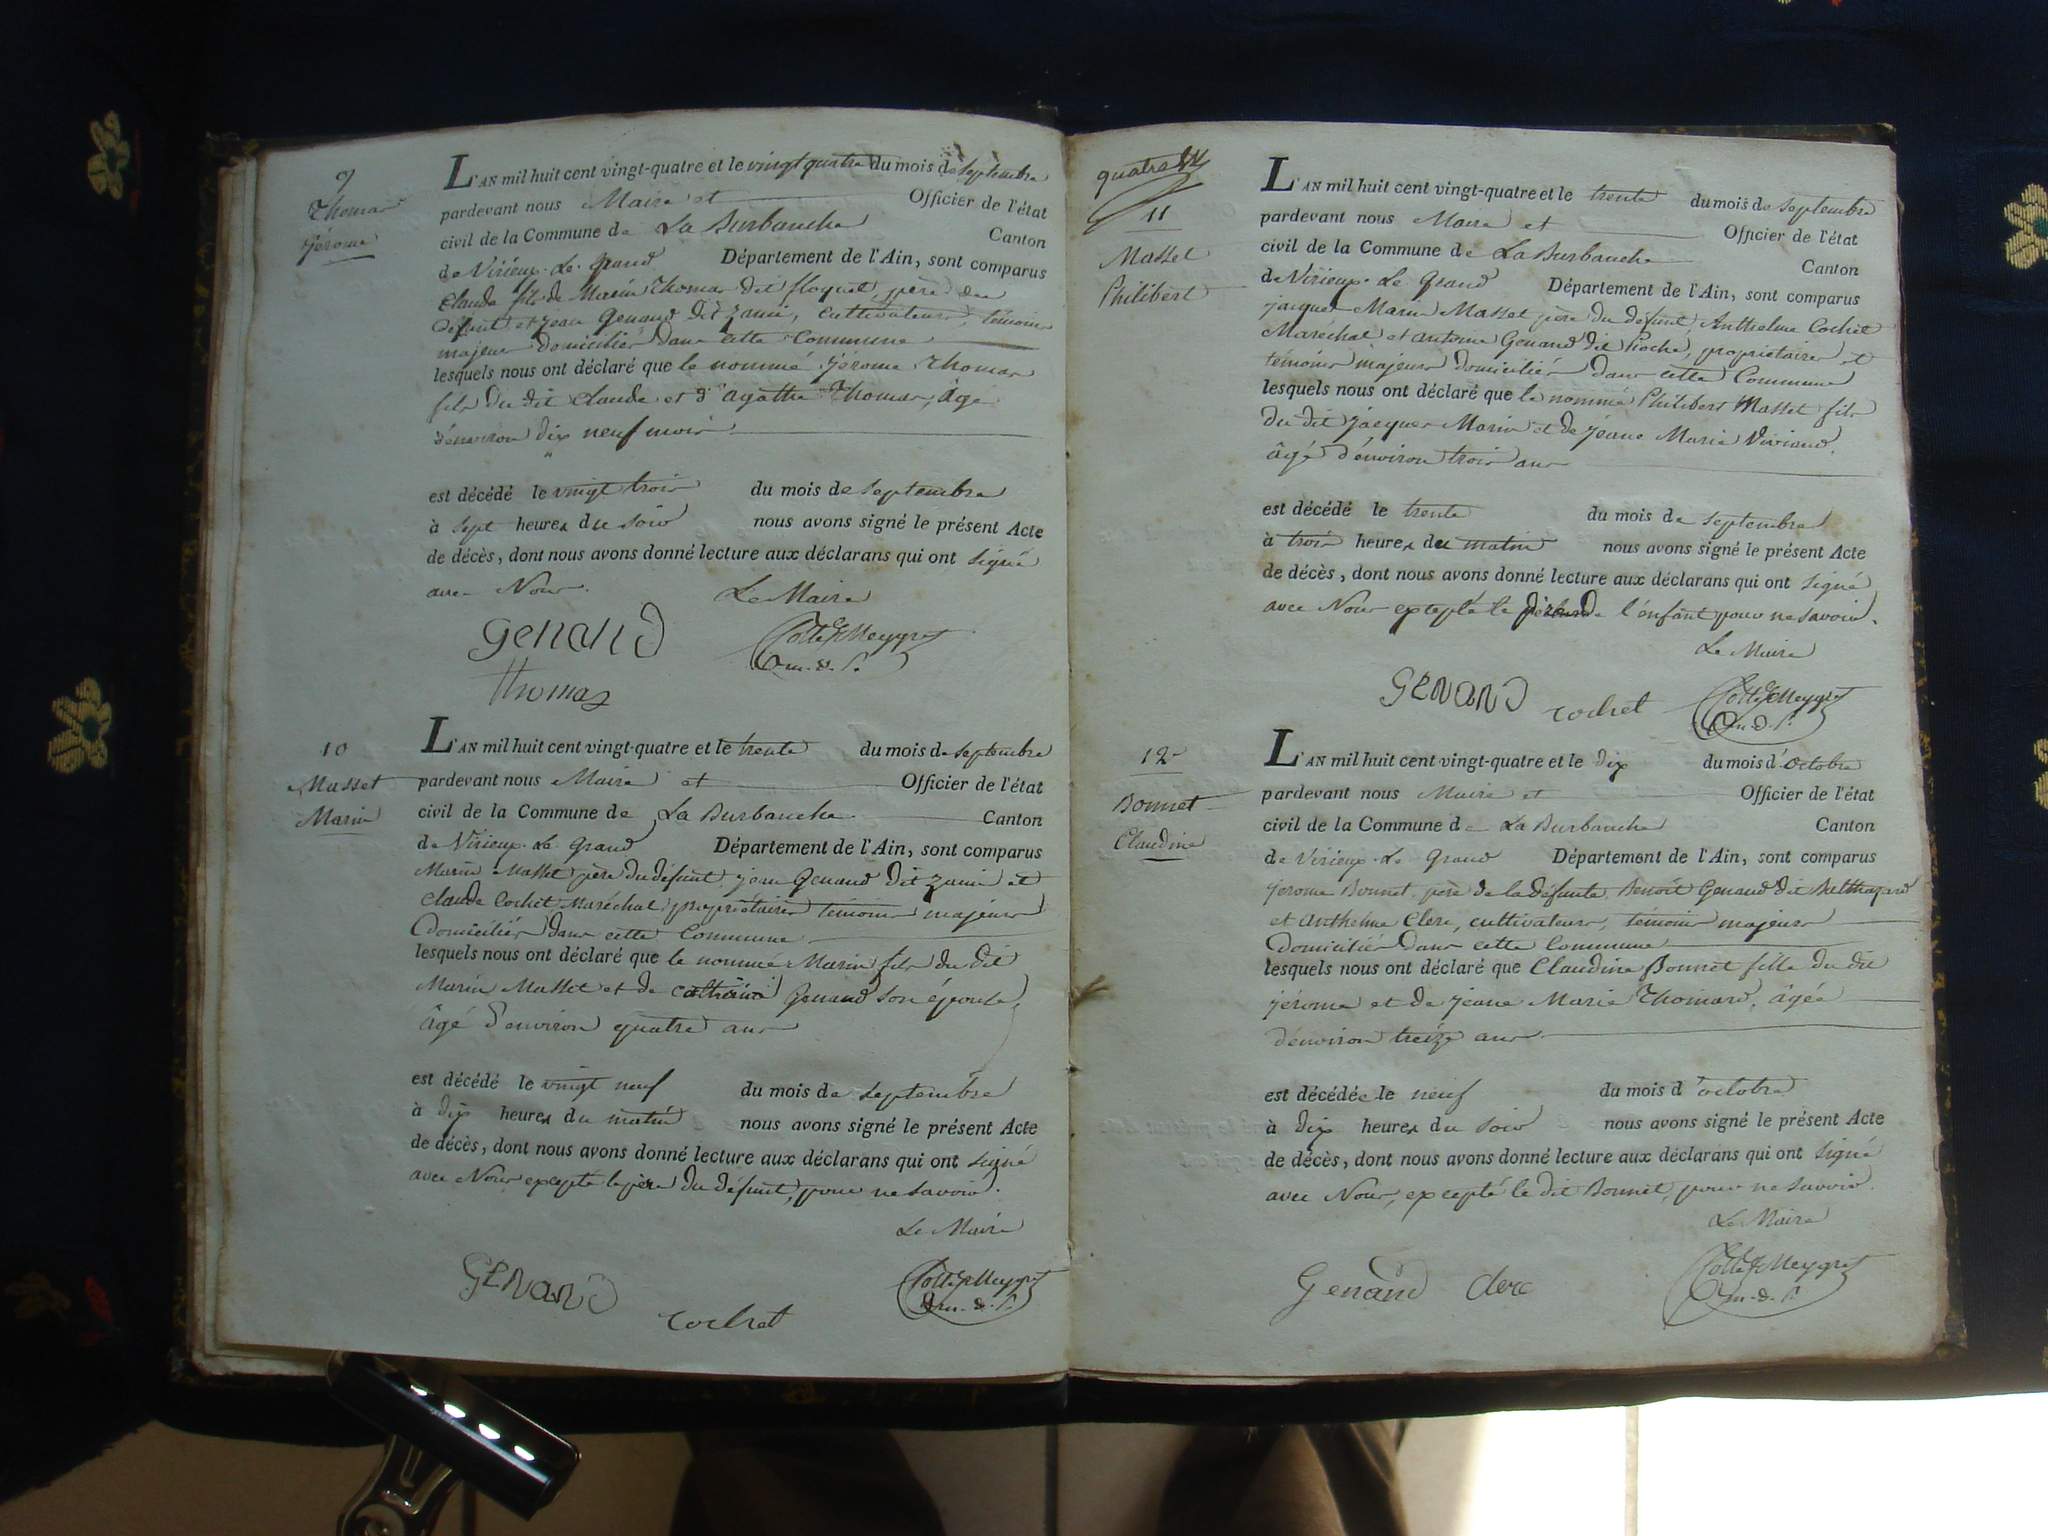 9
Thomas
Jérome
L'AN mil huit cent vingt-quatre et le vingt quatre du mois de septembre
pardevant nous Maire et Officier de l'état
civil de la Commune de La Burbanche Canton
de Virieux-Le-Grand Département de l'Ain, sont comparus
Claude fils de Marin Thomas dit floquet, père du
défunt et jean Genand dit zanin, cultivateurs, témoins
majeurs domiciliés dans cette Commune
lesquels nous ont déclaré que le nommé Jérome Thomas
fils du dit Claude et d'agathe Thomas, âgé
d'environ dix neuf mois
est décédé le vingt trois du mois de septembre
à sept heures du soir nous avons signé le présent Acte
de décès, dont nous avons donné lecture aux déclarans qui ont signé
avec Nous. Le Maire
Genand
Thomas
10
Masset
Marin
L'AN mil huit cent vingt-quatre et le trente du mois de septembre
pardevant nous Maire et Officier de l'état
civil de la Commune de La Burbanche Canton
de Virieux-Le-Grand Département de l'Ain, sont comparus
Marin Masset père du défunt, jean Genand dit zanin et
Claude Cochet Maréchal, propriétaires témoins majeurs
domiciliés dans cette Commune
lesquels nous ont déclaré que le nommé Marin fils du dit
Marin Masset et de catherine Genand son épouse,
âgé d'environ quatre ans
est décédé le vingt neuf du mois de septembre
à dix heures du matin nous avons signé le présent Acte
de décès, dont nous avons donné lecture aux déclarans qui ont signé
avec Nous excepté le père du défunt, pour ne savoir.
Le Maire
Genand
Cochet
quatre
11
Masset
Philibert
L'AN mil huit cent vingt-quatre et le trente du mois de septembre
pardevant nous Maire et Officier de l'état
civil de la Commune de La Burbanche Canton
de Virieux-Le-Grand Département de l'Ain, sont comparus
jacques Marin Masset père du défunt, Anthelme Cochet
Maréchal et antoine Genand dit Pioche, propriétaires et
témoins majeurs domiciliés dans cette Commune
lesquels nous ont déclaré que le nommé Philibert Masset fils
du dit jacques Marin et de jeane Marie Viviand,
âgé d'environ trois ans
est décédé le trente du mois de septembre
à trois heures du matin nous avons signé le présent Acte
de décès, dont nous avons donné lecture aux déclarans qui ont signé
avec Nous excepté le père de l'enfant pour ne savoir.
Le Maire
Genand Cochet
12
Bonnet
Claudine
L'AN mil huit cent vingt-quatre et le dix du mois d'octobre
pardevant nous Maire et Officier de l'état
civil de la Commune de La Burbanche Canton
de Virieux-Le-Grand Département de l'Ain, sont comparus
jerome Bonnet, père de la défunte, Benoît Genand dit Balthazard
et Anthelme Clerc, cultivateurs, témoins majeurs
domiciliés dans cette Commune
lesquels nous ont déclaré que Claudine Bonnet fille du dit
jérome et de jeane Marie Thomard, âgée
d'environ treize ans
est décédée le neuf du mois d'octobre
à dix heures du soir nous avons signé le présent Acte
de décès, dont nous avons donné lecture aux déclarans qui ont signé
avec Nous, excepté le dit Bonnet, pour ne savoir.
Le Maire
Genand Clerc